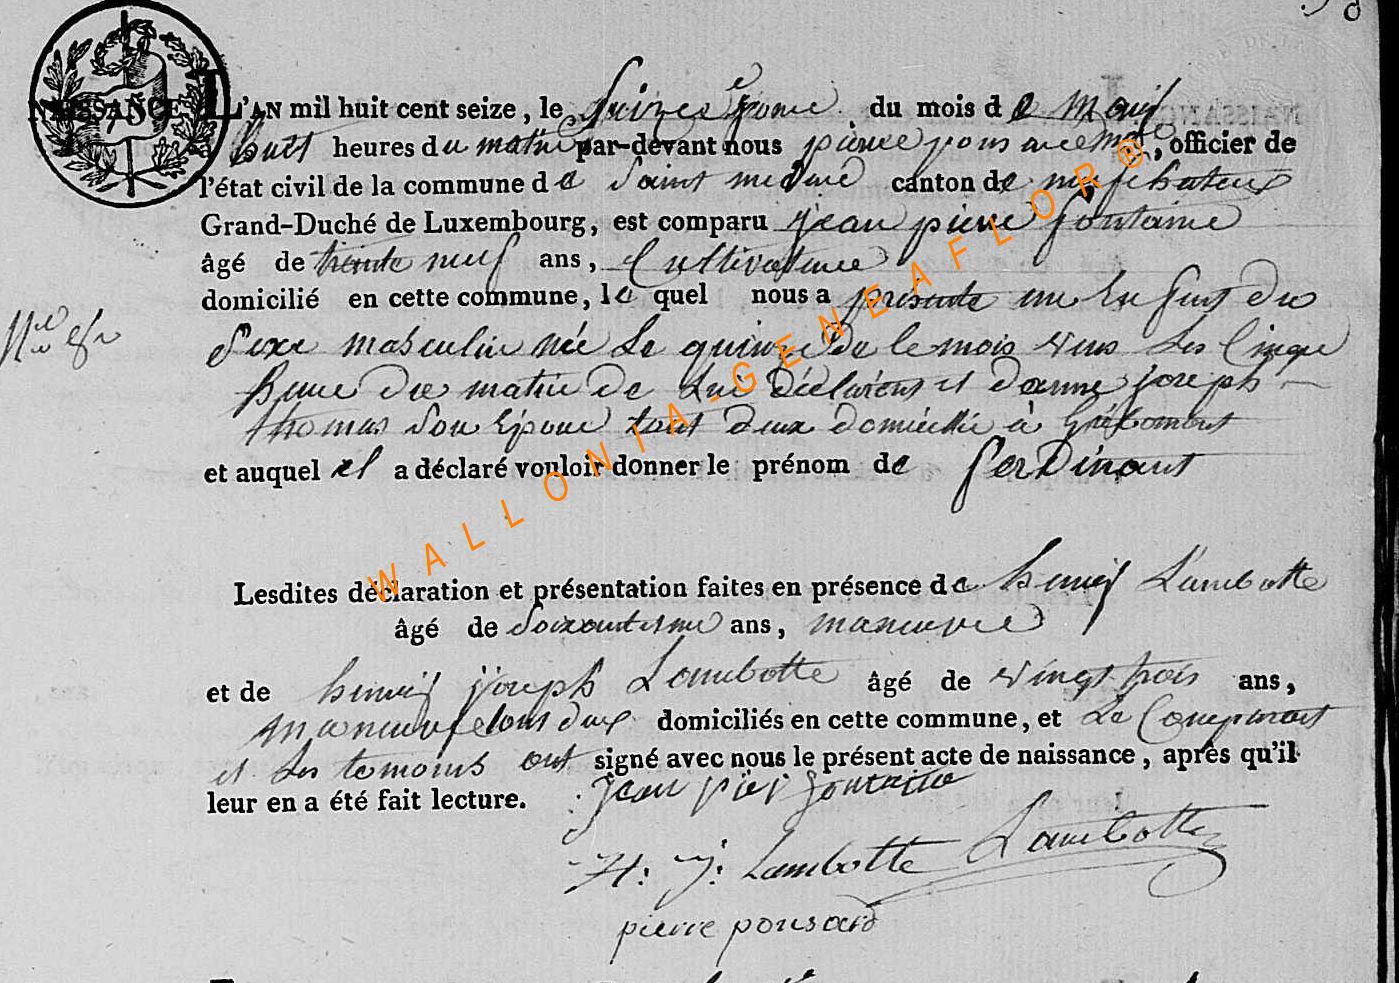 NAISSANCE
L'AN mil huit cent seize, le Seizes jome du mois de
a huit heures du matin par-devant nous pierre, officier de
l'état civil de la commune de Saint medard canton de neufchateux
Grand-Duché de Luxembourg, est comparu jean piere fontaine
âgé de trente neuf ans, Cultivateure
domicilié en cette commune, le quel nous a presente un Enfant du
Sexe masculin née Le quinze De le mois vers Les Cinque
heure du matin de Lui Déclarent et Joseph
thomas Son Epouse tout deux domicillié à Grapfontaine
et auquel il a déclaré vouloir donner le prénom de ferDinant
Lesdites déclaration et présentation faites en présence de henrÿ Lambotte
âgé de ans, maneuvre
et de henrÿ joseph Lambotte âgé de vingt trois ans,
maneuvre tous deux domiciliés en cette commune, et Le Comparant
et Les temoins ont signé avec nous le présent acte de naissance, après qu'il
leur en a été fait lecture. jean pier fontaine
H: J: Lambotte Lambotte
pierre ponsard
WALLONIA-GENEAFLOR®